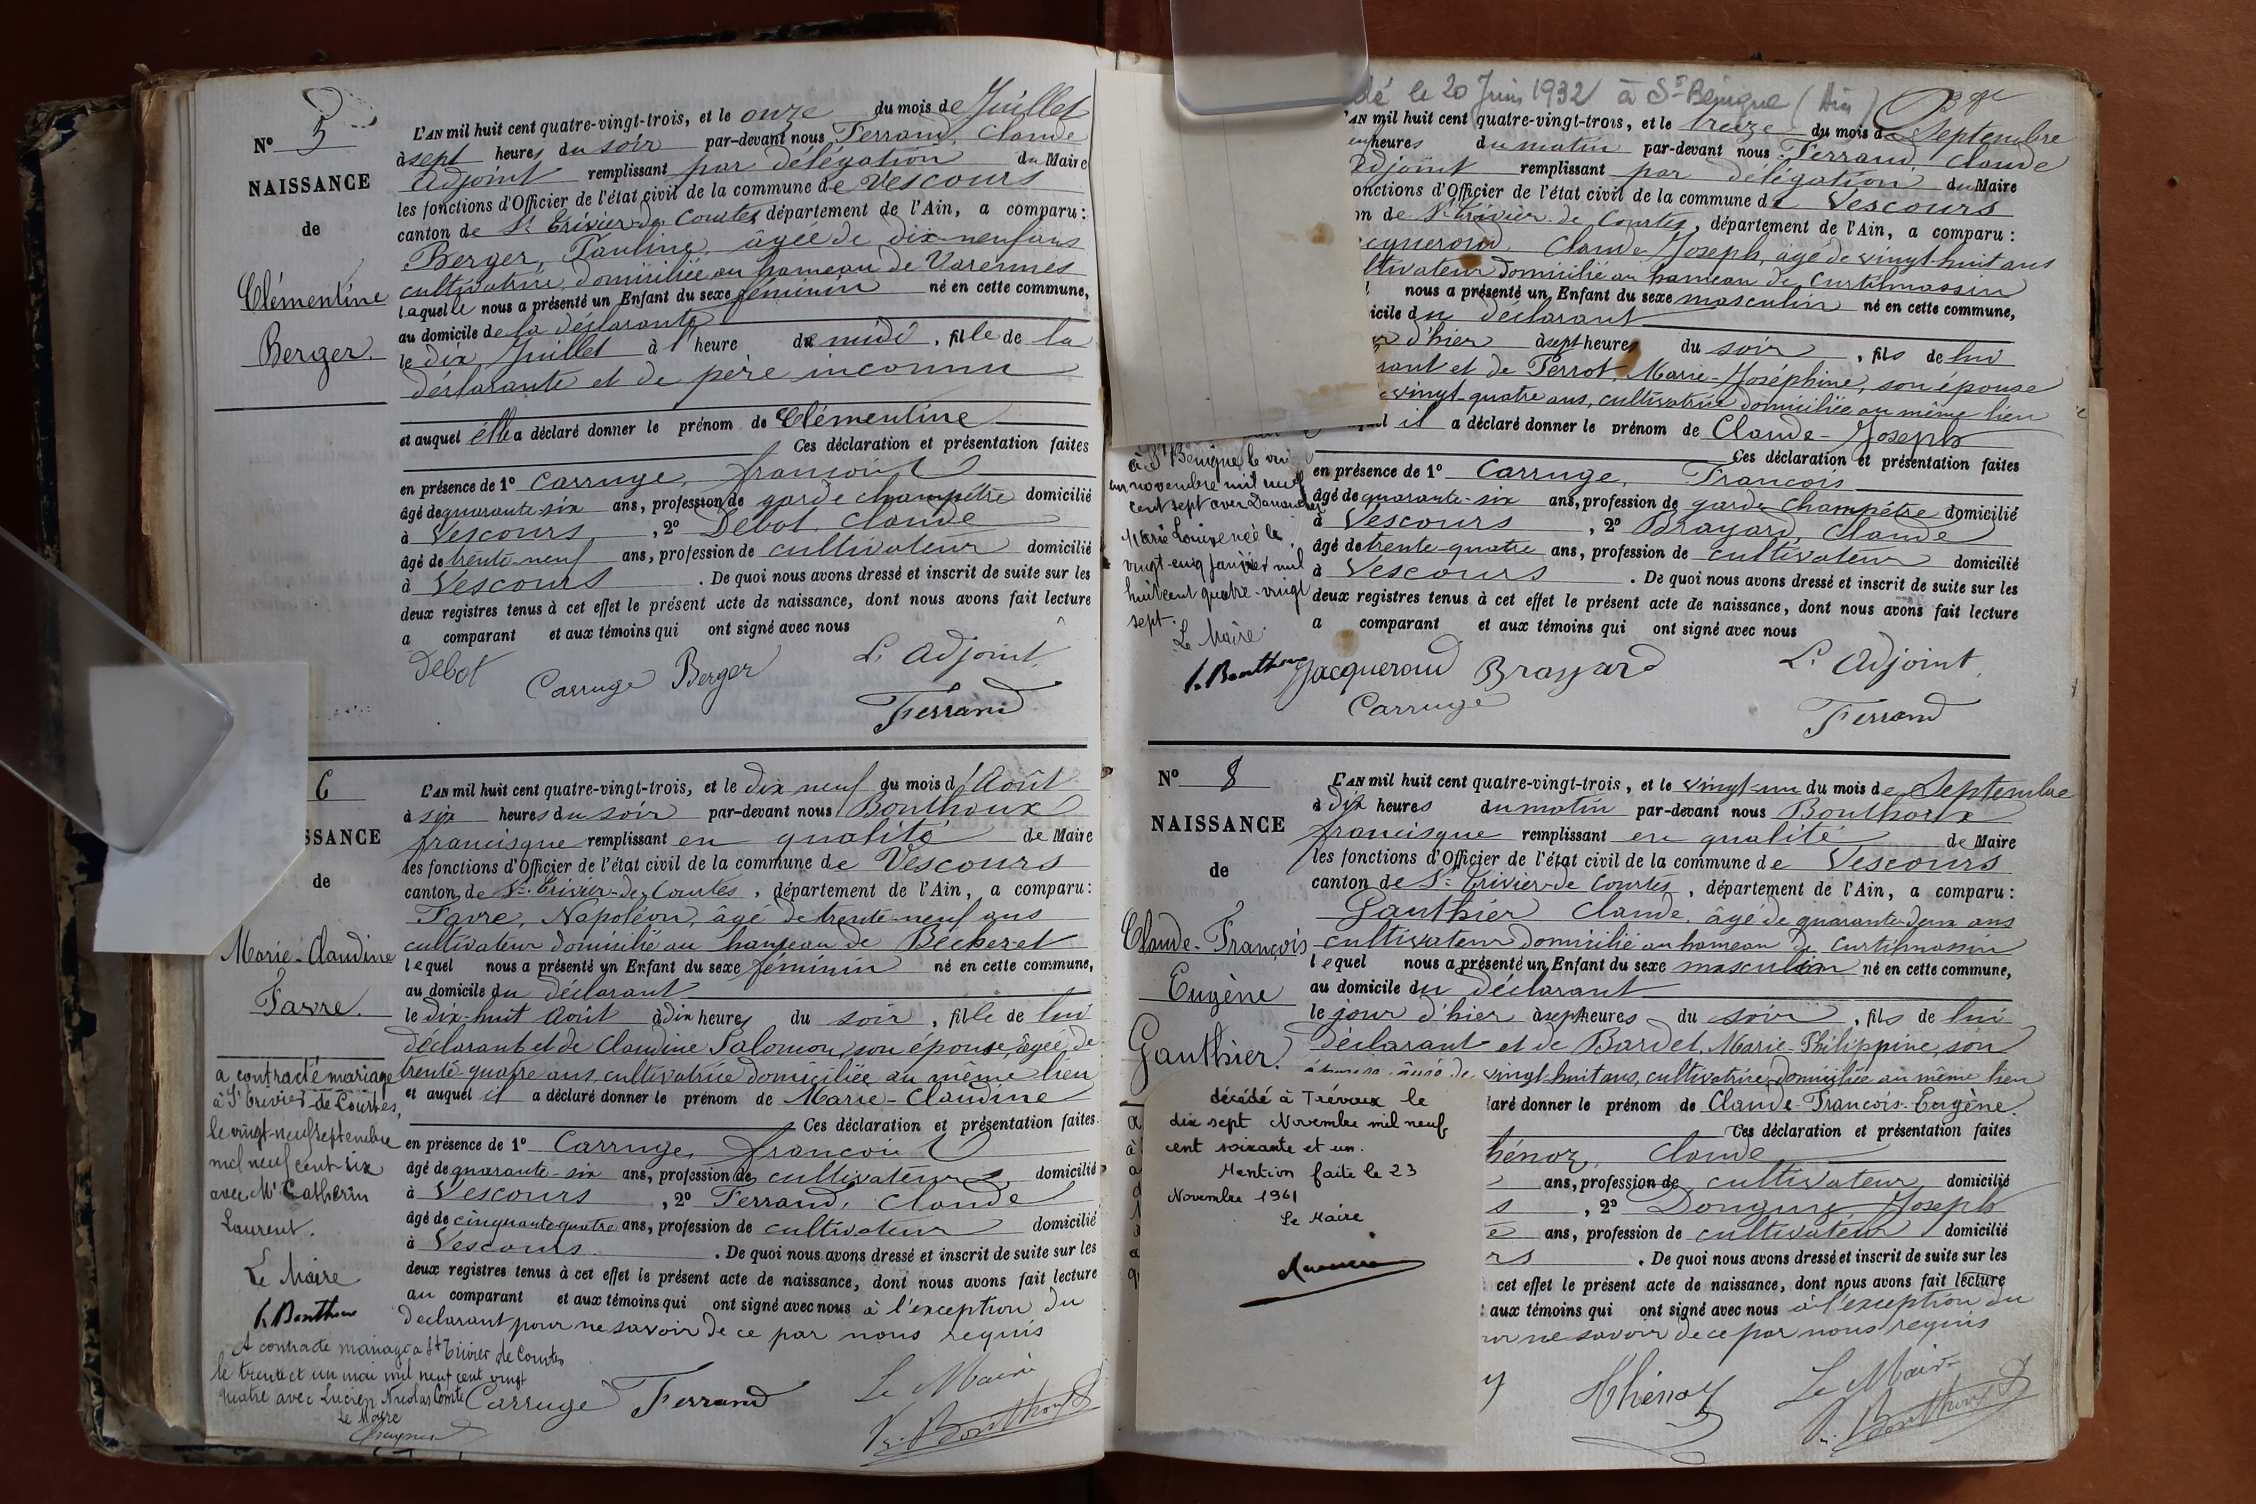 Nº 5
NAISSANCE
de
Clémentine
Berger.
L'AN mil huit cent quatre-vingt-trois, et le onze du mois de Juillet
à sept heures du soir par-devant nous Ferrand, Claude
adjoint remplissant par délégation du Maire
les fonctions d'Officier de l'état civil de la commune de Vescours
canton de St Trivier-de-Courtes, département de l'Ain, a comparu :
Berger, Pauline, âgée de dix-neuf ans
cultivatrice, domiciliée au hameau de Varennes
laquelle nous a présenté un Enfant du sexe féminin né en cette commune,
au domicile de la déclarante
le dix Juillet à l'heure de midi, fille de la
déclarante et de père inconnu
et auquel elle a déclaré donner le prénom de Clémentine
Ces déclaration et présentation faites
en présence de 1º Carruge, françois
âgé de quarante-six ans, profession de garde champêtre domicilié
à Vescours, 2º Debot, Claude
âgé de trente-neuf ans, profession de cultivateur domicilié
à Vescours. De quoi nous avons dressé et inscrit de suite sur les
deux registres tenus à cet effet le présent acte de naissance, dont nous avons fait lecture
a comparant et aux témoins qui ont signé avec nous
Debot Carruge Berger L'adjoint,
Ferrand
6
SSANCE
de
Marie-Claudine
Favre.
a contracté mariage
à St Trivier-de-Courtes,
le vingt-neuf septembre
mil neuf cent six
avec Mr Catherin
Laurent.
Le Maire
f. Bonthoux
A contracté mariage à St Trivier de Courtes
le trente et un mai mil neuf cent vingt
quatre avec Lucien Nicolas Comte
Le Maire
L'AN mil huit cent quatre-vingt-trois, et le dix neuf du mois d'Août
à six heures du soir par-devant nous Bonthoux
francisque remplissant en qualité de Maire
les fonctions d'Officier de l'état civil de la commune de Vescours
canton de St-Trivier-de-Courtes, département de l'Ain, a comparu :
Favre, Napoléon, âgé de trente-neuf ans
cultivateur domicilié au hameau de Becherel
lequel nous a présenté un Enfant du sexe féminin né en cette commune,
au domicile du déclarant
le dix-huit Août à dix heures du soir, fille de lui
déclarant et de Claudine Salomon, son épouse, âgée de
trente quatre ans, cultivatrice domiciliée au même lieu
et auquel il a déclaré donner le prénom de Marie-Claudine
Ces déclaration et présentation faites
en présence de 1º Carruge, françois
âgé de quarante-six ans, profession de cultivateur domicilié
à Vescours, 2º Ferrand, Claude
âgé de cinquante-quatre ans, profession de cultivateur domicilié
à Vescours. De quoi nous avons dressé et inscrit de suite sur les
deux registres tenus à cet effet le présent acte de naissance, dont nous avons fait lecture
au comparant et aux témoins qui ont signé avec nous à l'exception du
déclarant pour ne savoir de ce par nous requis
Carruge Ferrand Le Maire
Fr. Bonthoux
dé le 20 Juin 1932 à St-Bénigne (Ain)
'AN mil huit cent quatre-vingt-trois, et le treize du mois de Septembre
heures du matin par-devant nous Ferrand Claude
adjoint remplissant par délégation du Maire
onctions d'Officier de l'état civil de la commune de Vescours
n de St Trivier-de Courtes, département de l'Ain, a comparu :
cqueroud Claude Joseph, âgé de vingt-huit ans
ltivateur domicilié au hameau de Curtilmassin
nous a présenté un Enfant du sexe masculin né en cette commune,
icile du déclarant
d'hier à sept heures du soir, fils de lui
rant et de Perrot, Marie-Joséphine, son épouse
vingt-quatre ans, cultivatrice domiciliée au même lieu
quel il a déclaré donner le prénom de Claude-Joseph
Ces déclaration et présentation faites
en présence de 1º Carruge, François
âgé de quarante-six ans, profession de garde champêtre domicilié
à Vescours, 2º Brayard, Claude
âgé de trente-quatre ans, profession de cultivateur domicilié
à Vescours. De quoi nous avons dressé et inscrit de suite sur les
deux registres tenus à cet effet le présent acte de naissance, dont nous avons fait lecture
a comparant et aux témoins qui ont signé avec nous
à St Bénigne le
un novembre mil neuf
cent sept avec
Marie Louise née le
vingt-cinq janvier mil
huit cent quatre-vingt
sept.
Le Maire
f. Bonthoux
Jacqueroud Brayard L'adjoint,
Carruge Ferrand
Nº 8
NAISSANCE
de
Claude-François
Eugène
Gauthier.
L'AN mil huit cent quatre-vingt-trois, et le vingt-un du mois de Septembre
à dix heures du matin par-devant nous Bonthoux
francisque remplissant en qualité de Maire
les fonctions d'Officier de l'état civil de la commune de Vescours
canton de St Trivier-de Courtes, département de l'Ain, a comparu :
Gauthier Claude, âgé de quarante-deux ans
cultivateur domicilié au hameau de Curtilmassin
lequel nous a présenté un Enfant du sexe masculin né en cette commune,
au domicile du déclarant
le jour d'hier à sept heures du soir, fils de lui
déclarant et de Bardet, Marie-Philippine, son
épouse âgée de vingt-huit ans, cultivatrice, domiciliée au même lieu
laré donner le prénom de Claude-François-Eugène.
Ces déclaration et présentation faites
hénoz, Claude
ans, profession de cultivateur domicilié
s, 2º Donguy, Joseph
e ans, profession de cultivateur domicilié
rs. De quoi nous avons dressé et inscrit de suite sur les
cet effet le présent acte de naissance, dont nous avons fait lecture
aux témoins qui ont signé avec nous à l'exception du
ur ne savoir de ce par nous requis
y Thénoz Le Maire
Fr. Bonthoux
décédé à Trévoux le
dix sept Novembre mil neuf
cent soixante et un.
Mention faite le 23
Novembre 1961
Le Maire